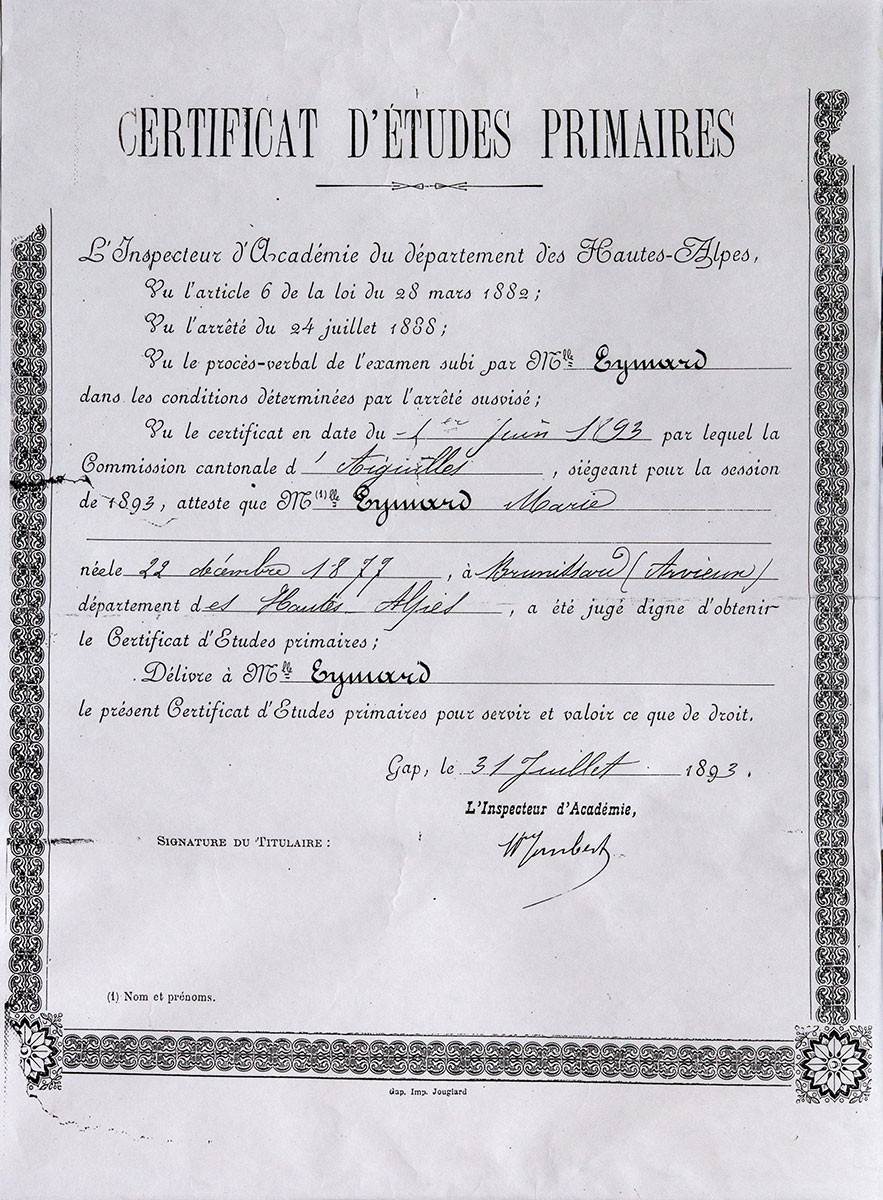 CERTIFICAT D'ÉTUDES PRIMAIRES
L'Inspecteur d'Académie du département des Hautes-Alpes,
Vu l'article 6 de la loi du 28 mars 1882;
Vu l'arrêté du 24 juillet 1888;
Vu le procès-verbal de l'examen subi par Mlle Eymard
dans les conditions déterminées par l'arrêté susvisé;
Vu le certificat en date du 1er Juin 1893 par lequel la
Commission cantonale d'Aiguilles, siégeant pour la session
de 1893, atteste que M(1)lle Eymard Marie
née le 22 décembre 1877, à Brunissard (Arvieux)
département des Hautes-Alpes, a été jugé digne d'obtenir
le Certificat d'Etudes primaires;
Délivre à Mlle Eymard
le présent Certificat d'Etudes primaires pour servir et valoir ce que de droit.
Gap, le 31 Juillet 1893.
L'Inspecteur d'Académie,
SIGNATURE DU TITULAIRE :
(1) Nom et prénoms.
Gap, Imp. Jouglard